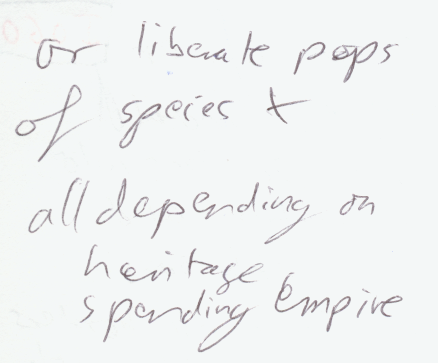 or liberate pops
of species X
all depending on
heritage
spending Empire